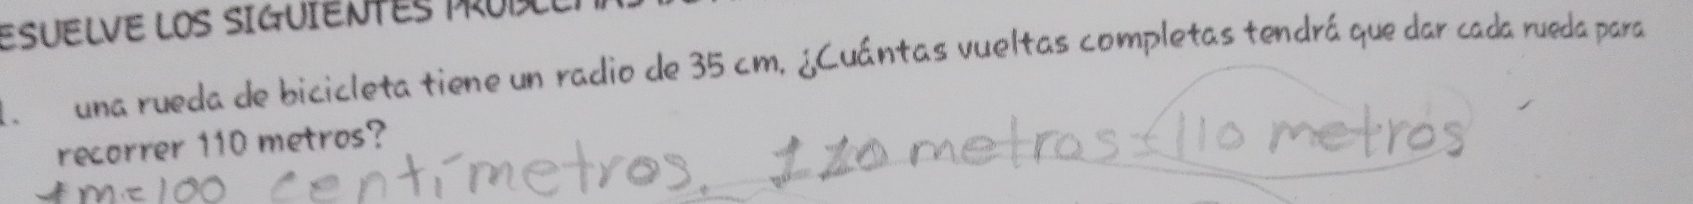 ESUELVE LOS SIGUIENTES
1. una rueda de bicicleta tiene un radio de 35 cm. ¿Cuántas vueltas completas tendrá que dar cada rueda para
recorrer 110 metros?
1m=100 centímetros. 110 metros=110 metros